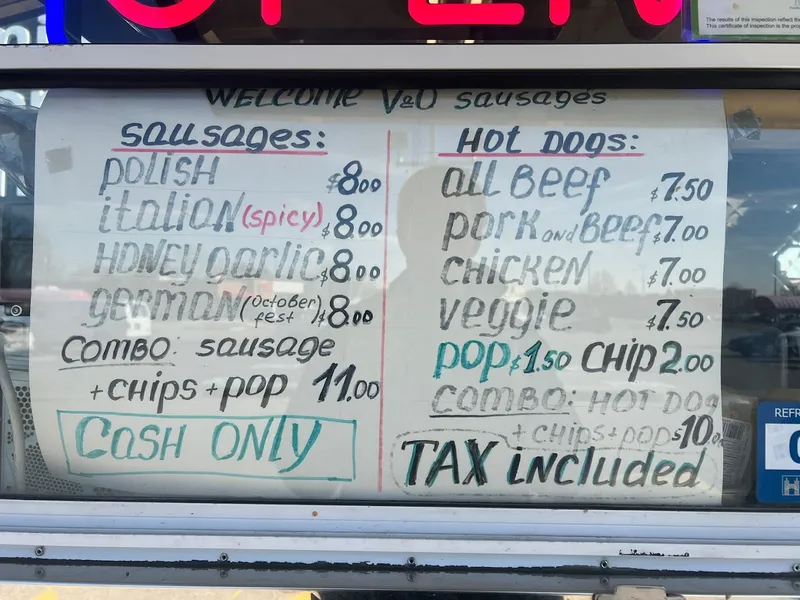 OPEN
The results of this inspection reflect the
This certificate of inspection is the pro
WELCOME V&O sausages
sausages:
polish $8.00
italian (spicy) $8.00
Honey garlic $8.00
german (october fest) $8.00
combo: sausage
+ chips + pop 11.00
Cash only
Hot Dogs:
all Beef $7.50
pork and Beef $7.00
chicken $7.00
veggie $7.50
pop $1.50 chip 2.00
combo: Hot Dog
+ chips + pop $10.0
TAX included
REFR